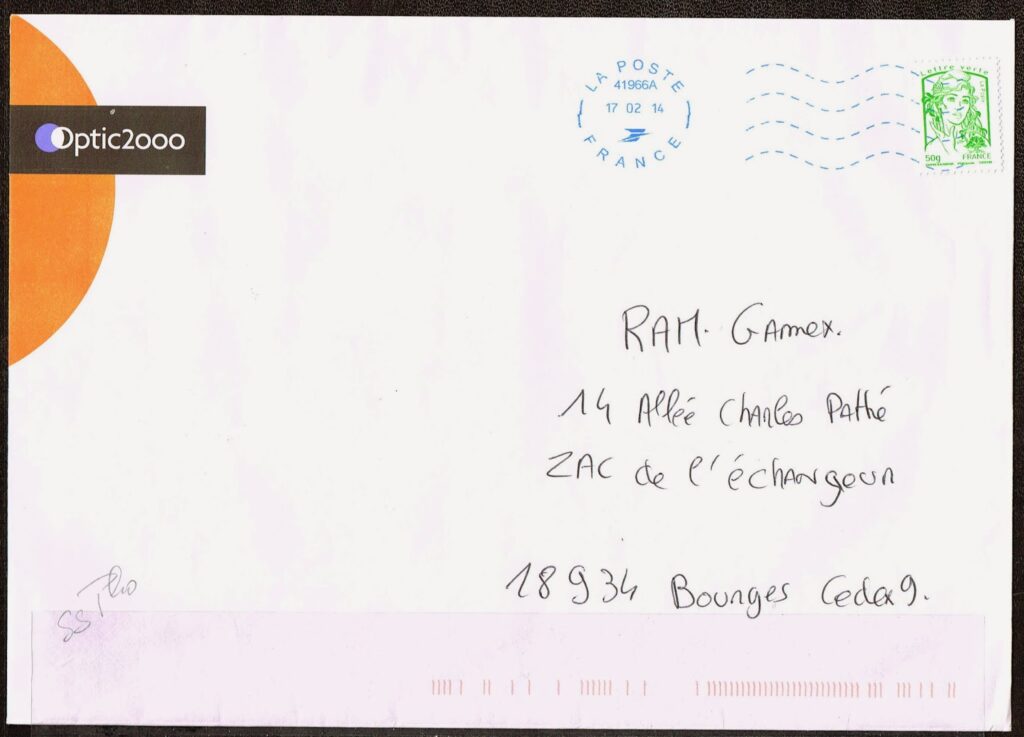 Optic2ooo
LA POSTE
41966A
17 02 14
FRANCE
Lettre verte
50g
FRANCE
RAM. Gamex.
14 Allée Charles Pathé
ZAC de l'échangeur
18934 Bourges Cedex 9.